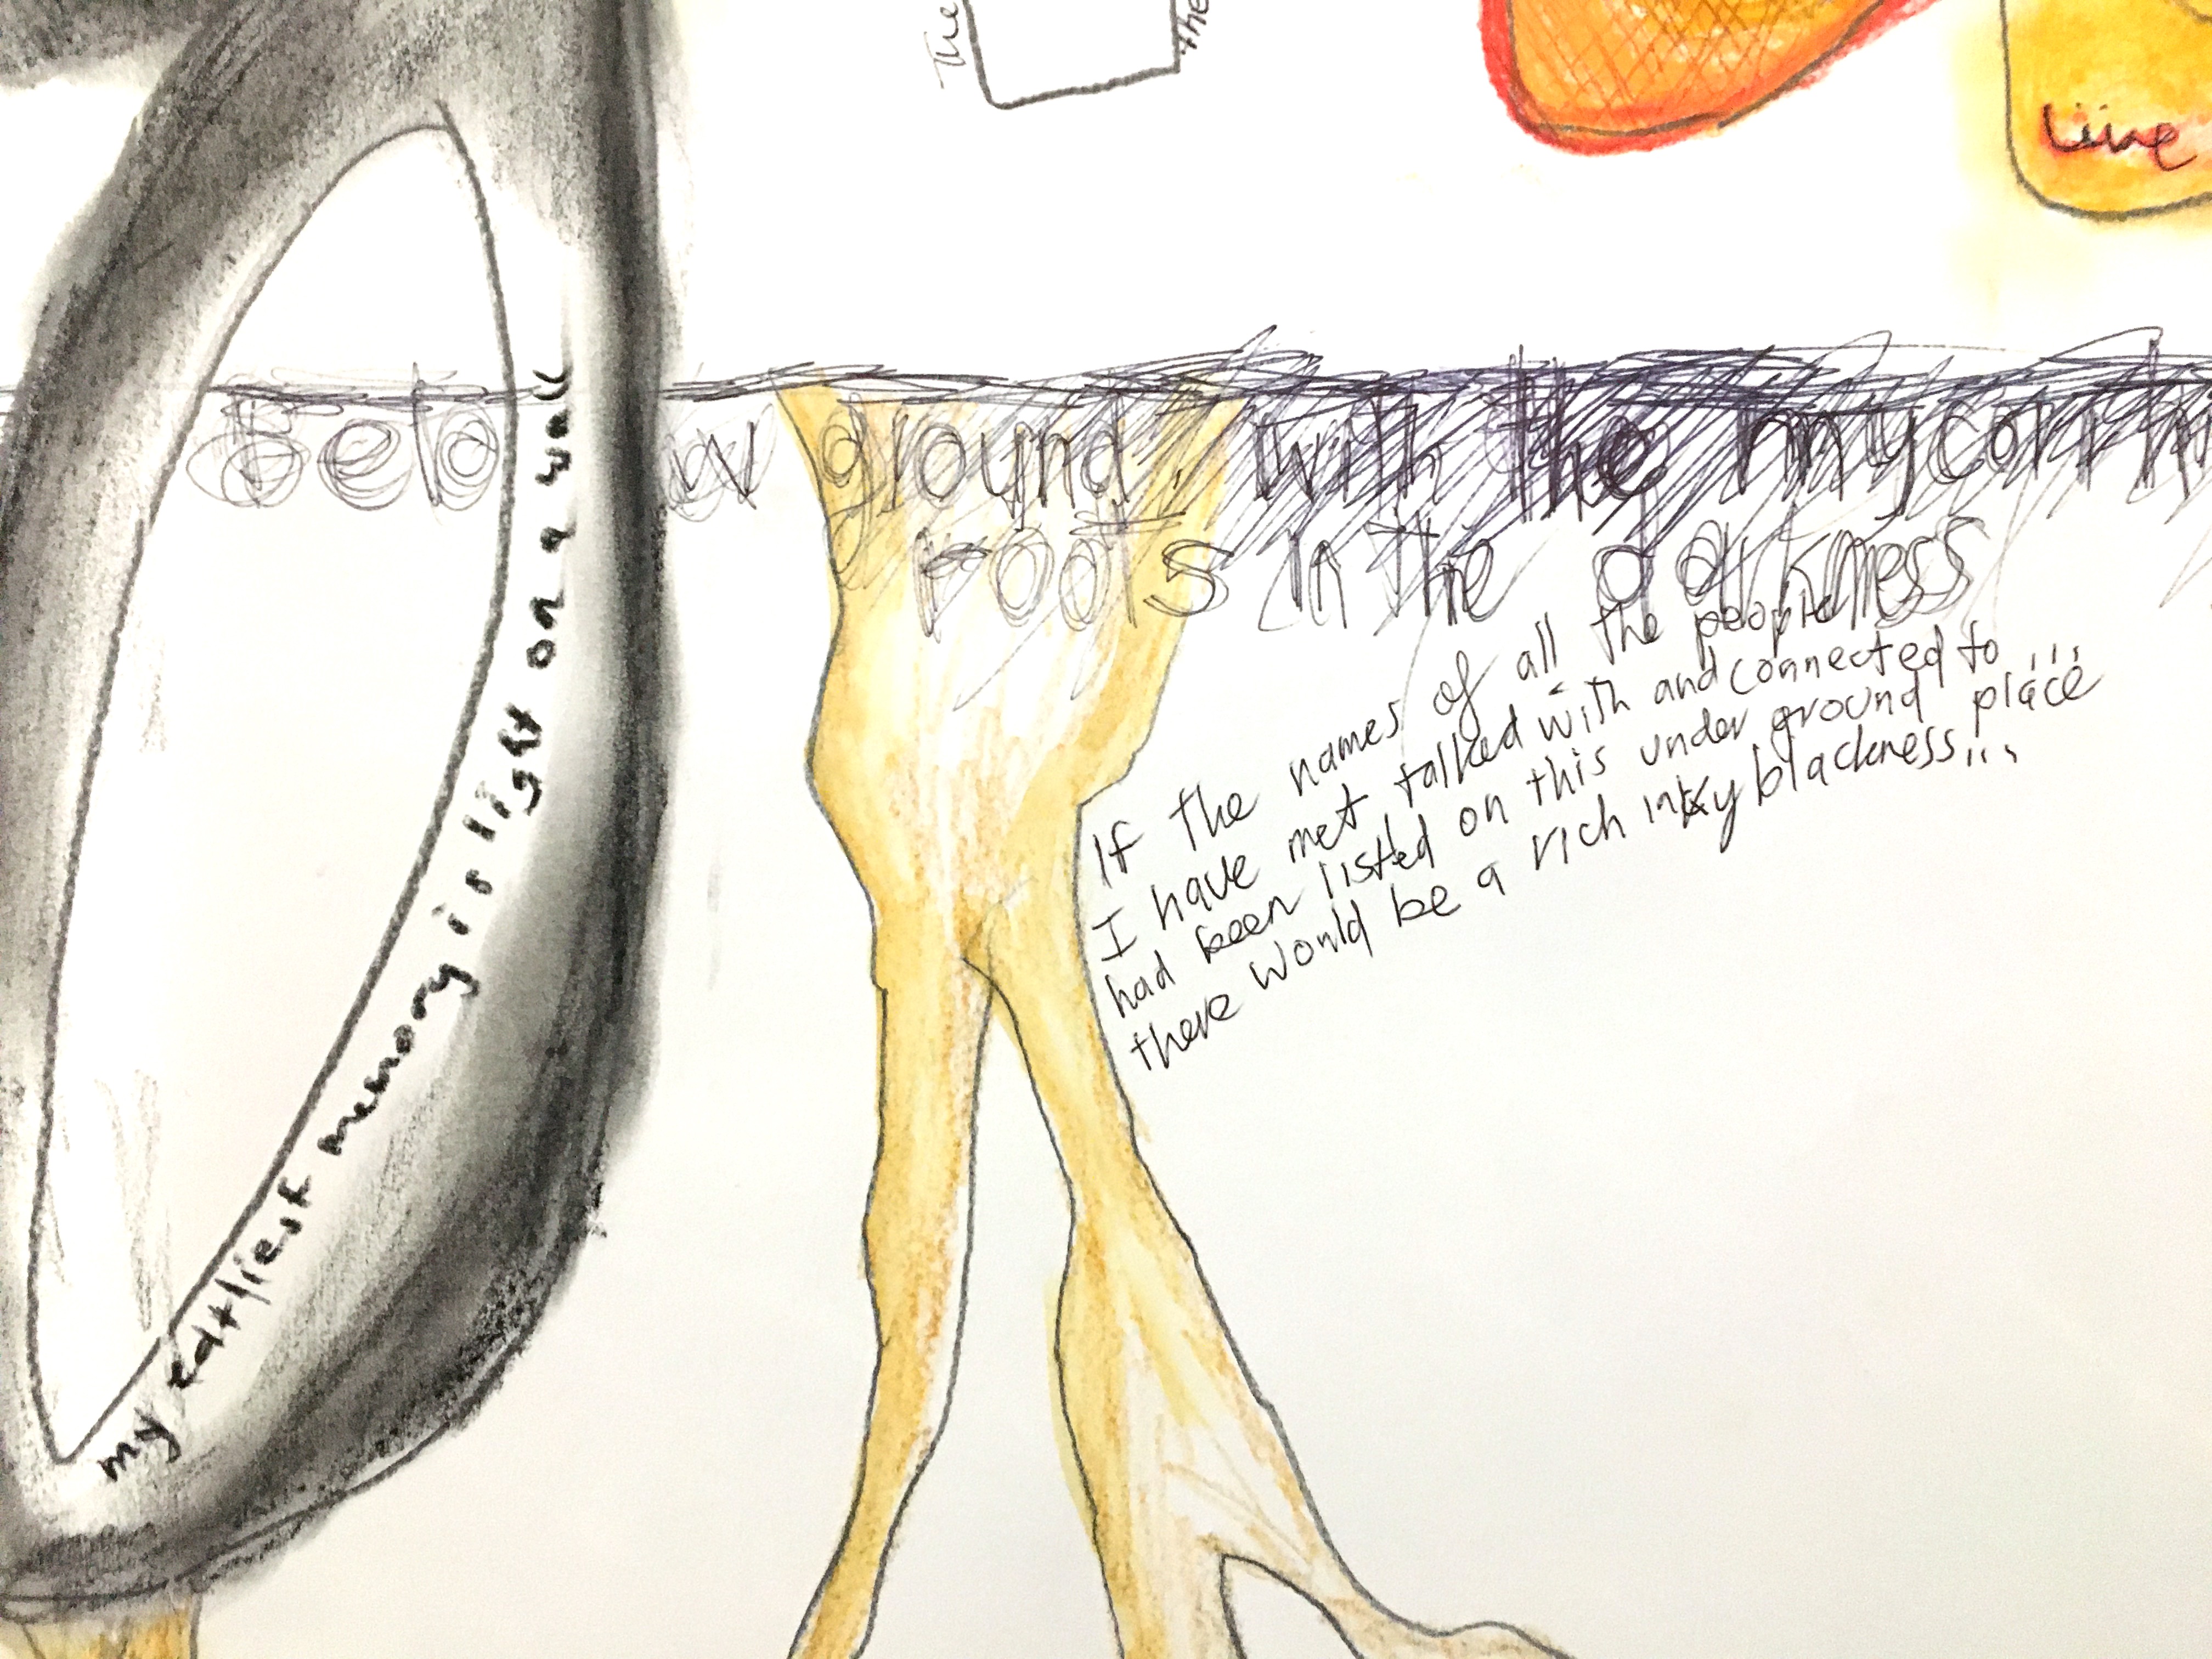 The
the
Live
Below ground, with the mycorrh
roots in the darkness
If the names of all the people
I have met talked with and connected to ...
had been listed on this under ground place
there would be a rich inky blackness...
my earliest memory is light on a wall